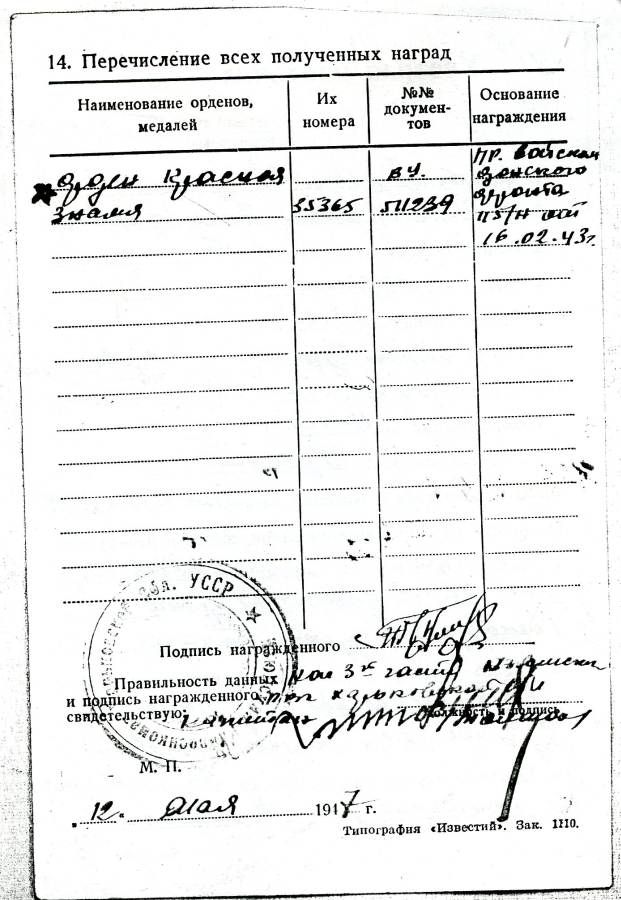 14. Перечисление всех полученных наград
Наименование орденов, медалей
Их номера
№№ докумен-
тов
Основание награждения
Орден Красная
Знамя
35365
вч.
511239
пр. войскам
Донского
фронта
№5/н от
16.02.43г
УССР
Подпись награжденного
Правильность данных Нач 3й части
и подпись награжденного Харьковской
свидетельствую: Капитан
должность и подпись
М. П.
"12" мая 1947 г.
Типография «Известий». Зак. 1110.